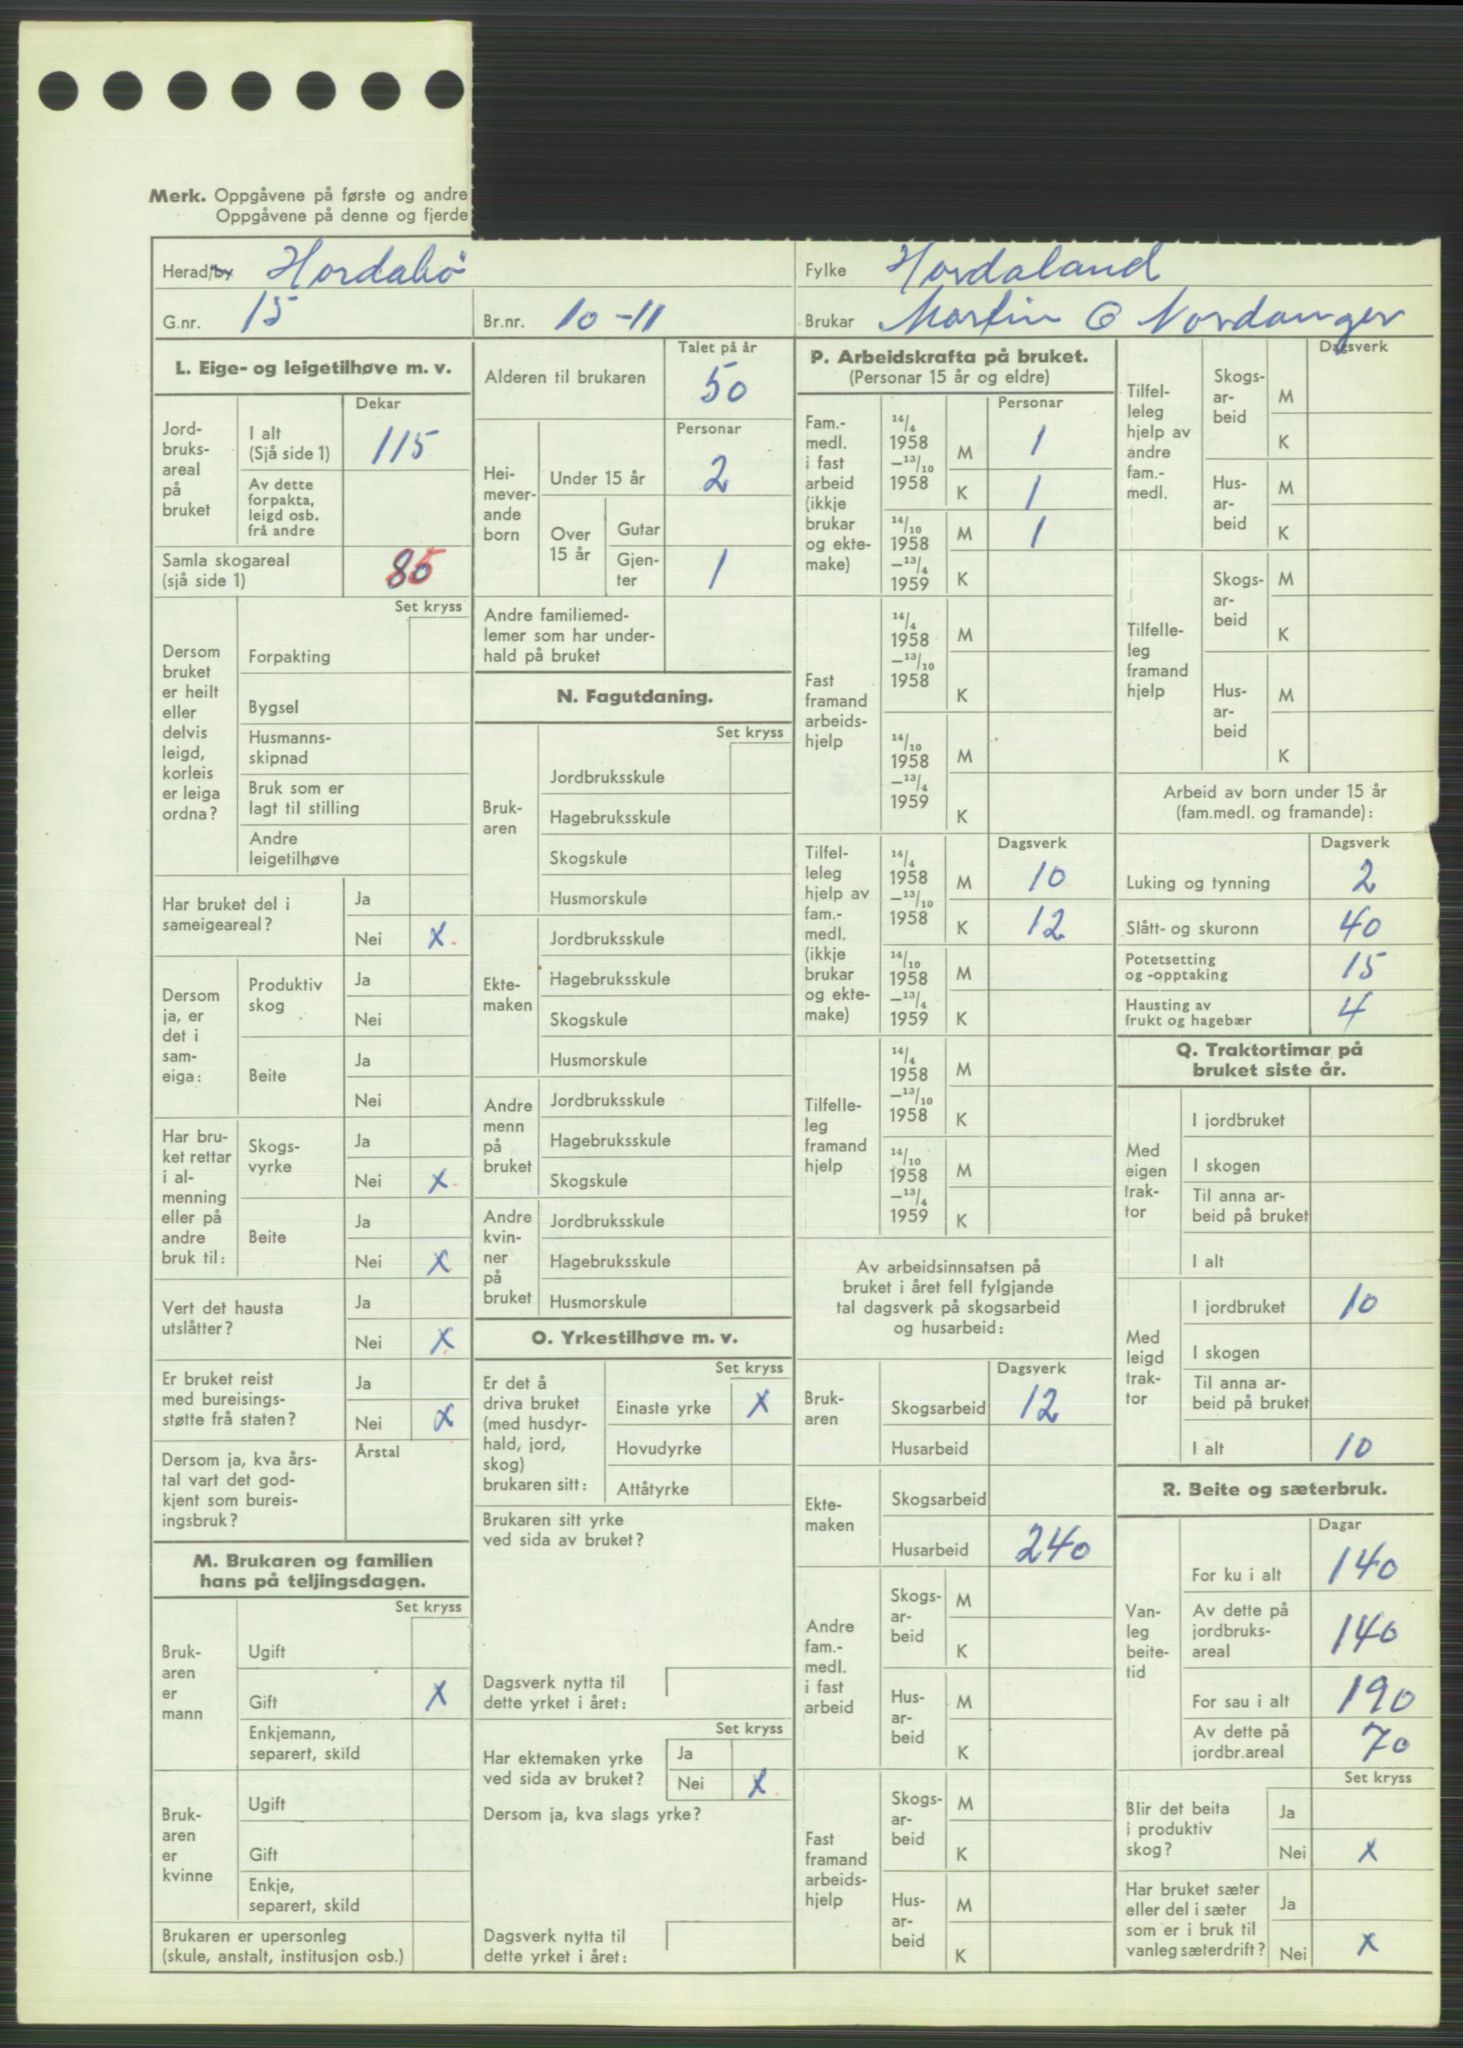 Merk. Oppgåvene på første og andre
Oppgåvene på denne og fjerde
Herad/by Hordabø
Fylke Hordaland
G.nr. 15
Br.nr. 10-11
Brukar Martin O Nordanger
L. Eige- og leigetilhøve m. v.
Dekar
Jord-
bruks-
areal
på
bruket
I alt
(Sjå side 1) 115
Av dette
forpakta,
leigd osb.
frå andre
Samla skogareal
(sjå side 1) 85
Set kryss
Dersom
bruket
er heilt
eller
delvis
leigd,
korleis
er leiga
ordna?
Forpakting
Bygsel
Husmanns-
skipnad
Bruk som er
lagt til stilling
Andre
leigetilhøve
Har bruket del i
sameigeareal?
Ja
Nei x
Dersom
ja, er
det i
sam-
eiga:
Produktiv
skog
Ja
Nei
Beite
Ja
Nei
Har bru-
ket rettar
i al-
menning
eller på
andre
bruk til:
Skogs-
vyrke
Ja
Nei x
Beite
Ja
Nei x
Vert det hausta
utslåtter?
Ja
Nei x
Er bruket reist
med bureisings-
støtte frå staten?
Ja
Nei x
Dersom ja, kva års-
tal vart det god-
kjent som bureis-
ingsbruk?
Årstal
M. Brukaren og familien
hans på teljingsdagen.
Set kryss
Bruk-
aren
er
mann
Ugift
Gift x
Enkjemann,
separert, skild
Bruk-
aren
er
kvinne
Ugift
Gift
Enkje,
separert, skild
Brukaren er upersonleg
(skule, anstalt, institusjon osb.)
Talet på år
Alderen til brukaren 50
Personar
Hei-
mever-
ande
born
Under 15 år 2
Over
15 år
Gutar
Gjen-
ter 1
Andre familiemed-
lemer som har under-
hald på bruket
N. Fagutdaning.
Set kryss
Bruk-
aren
Jordbruksskule
Hagebruksskule
Skogskule
Husmorskule
Ekte-
maken
Jordbruksskule
Hagebruksskule
Skogskule
Husmorskule
Andre
menn
på
bruket
Jordbruksskule
Hagebruksskule
Skogskule
Andre
kvin-
ner
på
bruket
Jordbruksskule
Hagebruksskule
Husmorskule
O. Yrkestilhøve m. v.
Set kryss
Er det å
driva bruket
(med husdyr-
hald, jord,
skog)
brukaren sitt:
Einaste yrke x
Hovudyrke
Attåtyrke
Brukaren sitt yrke
ved sida av bruket?
Dagsverk nytta til
dette yrket i året:
Set kryss
Har ektemaken yrke
ved sida av bruket?
Ja
Nei x
Dersom ja, kva slags yrke?
Dagsverk nytta til
dette yrket i året:
P. Arbeidskrafta på bruket.
(Personar 15 år og eldre)
Personar
Fam.-
medl.
i fast
arbeid
(ikkje
brukar
og ekte-
make)
14/4
1958
—13/10
1958
M 1
K 1
14/10
1958
—13/4
1959
M 1
K
Fast
framand
arbeids-
hjelp
14/4
1958
—13/10
1958
M
K
14/10
1958
—13/4
1959
M
K
Dagsverk
Tilfel-
leleg
hjelp av
fam.-
medl.
(ikkje
brukar
og ekte-
make)
14/4
1958
—13/10
1958
M 10
K 12
14/10
1958
—13/4
1959
M
K
Tilfelle-
leg
framand
hjelp
14/4
1958
—13/10
1958
M
K
14/10
1958
—13/4
1959
M
K
Av arbeidsinnsatsen på
bruket i året fell fylgjande
tal dagsverk på skogsarbeid
og husarbeid:
Dagsverk
Bruk-
aren
Skogsarbeid 12
Husarbeid
Ekte-
maken
Skogsarbeid
Husarbeid 240
Andre
fam.-
medl.
i fast
arbeid
Skogs-
ar-
beid
M
K
Hus-
ar-
beid
M
K
Fast
framand
arbeids-
hjelp
Skogs-
ar-
beid
M
K
Hus-
ar-
beid
M
K
Dagsverk
Tilfel-
leleg
hjelp av
andre
fam.-
medl.
Skogs-
ar-
beid
M
K
Hus-
ar-
beid
M
K
Tilfelle-
leg
framand
hjelp
Skogs-
ar-
beid
M
K
Hus-
ar-
beid
M
K
Arbeid av born under 15 år
(fam.medl. og framande):
Dagsverk
Luking og tynning 2
Slått- og skuronn 40
Potetsetting
og -opptaking 15
Hausting av
frukt og hagebær 4
Q. Traktortimar på
bruket siste år.
Med
eigen
trak-
tor
I jordbruket
I skogen
Til anna ar-
beid på bruket
I alt
Med
leigd
trak-
tor
I jordbruket 10
I skogen
Til anna ar-
beid på bruket
I alt 10
R. Beite og sæterbruk.
Dagar
Van-
leg
beite-
tid
For ku i alt 140
Av dette på
jordbruks-
areal 140
For sau i alt 190
Av dette på
jordbr.areal 70
Set kryss
Blir det beita
i produktiv
skog?
Ja
Nei x
Har bruket sæter
eller del i sæter
som er i bruk til
vanleg sæterdrift?
Ja
Nei x